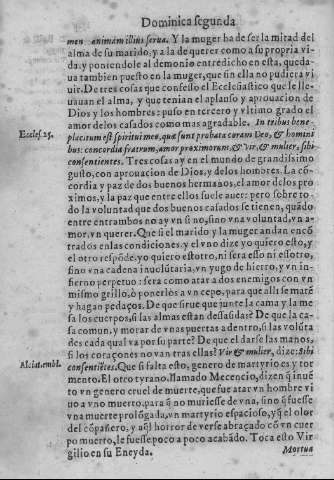 Dominica segunda
men animam illius serua. Y la muger ha de ser la mitad del
alma de su marido, y a la de querer como a su propria vi-
da, y poniendole al demonio entredicho en esta, queda-
ua tambien puesto en la muger, que sin ella no pudiera vi
uir. De tres cosas que confessò el Ecclesiastico que se lle-
uauan el alma, y que tenian el aplauso y aprouacion de
Dios y los hombres: puso en tercero y vltimo grado el
amor delos casados como mas agradable. In tribus bene-
Eccles. 25.
placitum est spiritui meo, quæ sunt probata coram Deo, & homini
bus: concordia fratrum, amor proximorum, & vir, & mulier, sibi
consentientes. Tres cosas ay en el mundo de grandissimo
gusto, con aprouacion de Dios, y delos hombres. La cō-
cordia y paz de dos buenos hermanos, el amor delos pro
ximos, y la paz que entre ellos suele auer: pero sobre to-
do la voluntad que dos buenos casados se tienen, quādo
entre entrambos no ay vn si no, sino vna voluntad, vn a-
mor, vn querer. Que si el marido y la muger andan encō
trados en las condiciones, y el vno dize yo quiero esto, y
el otro respōde: yo quiero estotro, ni sera esso ni essotro,
sino vna cadena inuolūtaria, vn yugo de hierro, y vn in-
fierno perpetuo: sera como atar a dos enemigos con vn
mismo grillo, ò ponerlos a vn cepo, para que alli se matē
y hagan pedaços. De que sirue que junte la cama y la me
sa los cuerpos, si las almas estan dessasidas? De que la ca-
sa comun, y morar de vnas puertas a dentro, si las volūta
des cada qual va por su parte? De que el darse las manos,
si los coraçones no van tras ellas? Vir & mulier, dize: sibi
Alciat. embl.
consentientes. Que si falta esto, genero de martyrio es y tor
mento. El otro tyrano, llamado Mecencio, dizen q̄ inuē
to vn genero cruel de muerte, que fue atar vn hombre vi
uo a vno muerto, para q̄ no muriesse de vna, sino q̄ fuesse
vna muerte prolōgada, vn martyrio espacioso, y q̄ el olor
del cōpañero, y aql̄ horror de verse abraçado cō vn cuer
po muerto, le fuesse poco a poco acabādo. Toca esto Vir
gilio en su Eneyda.
Mortua